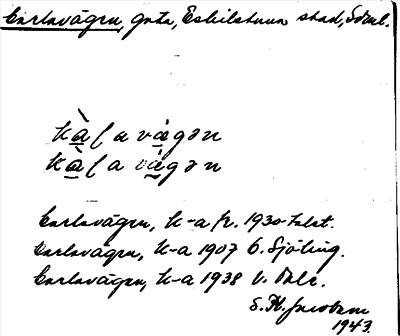 Carlavägen, gata, Eskilstuna stad, Söderl.
kàɭavägən
kàɭavägən
Carlavägen, k-a fr. 1930-talet.
Carlavägen, k-a 1907 C. Sjöling.
Carlavägen, k-a 1938
S. 
1943.